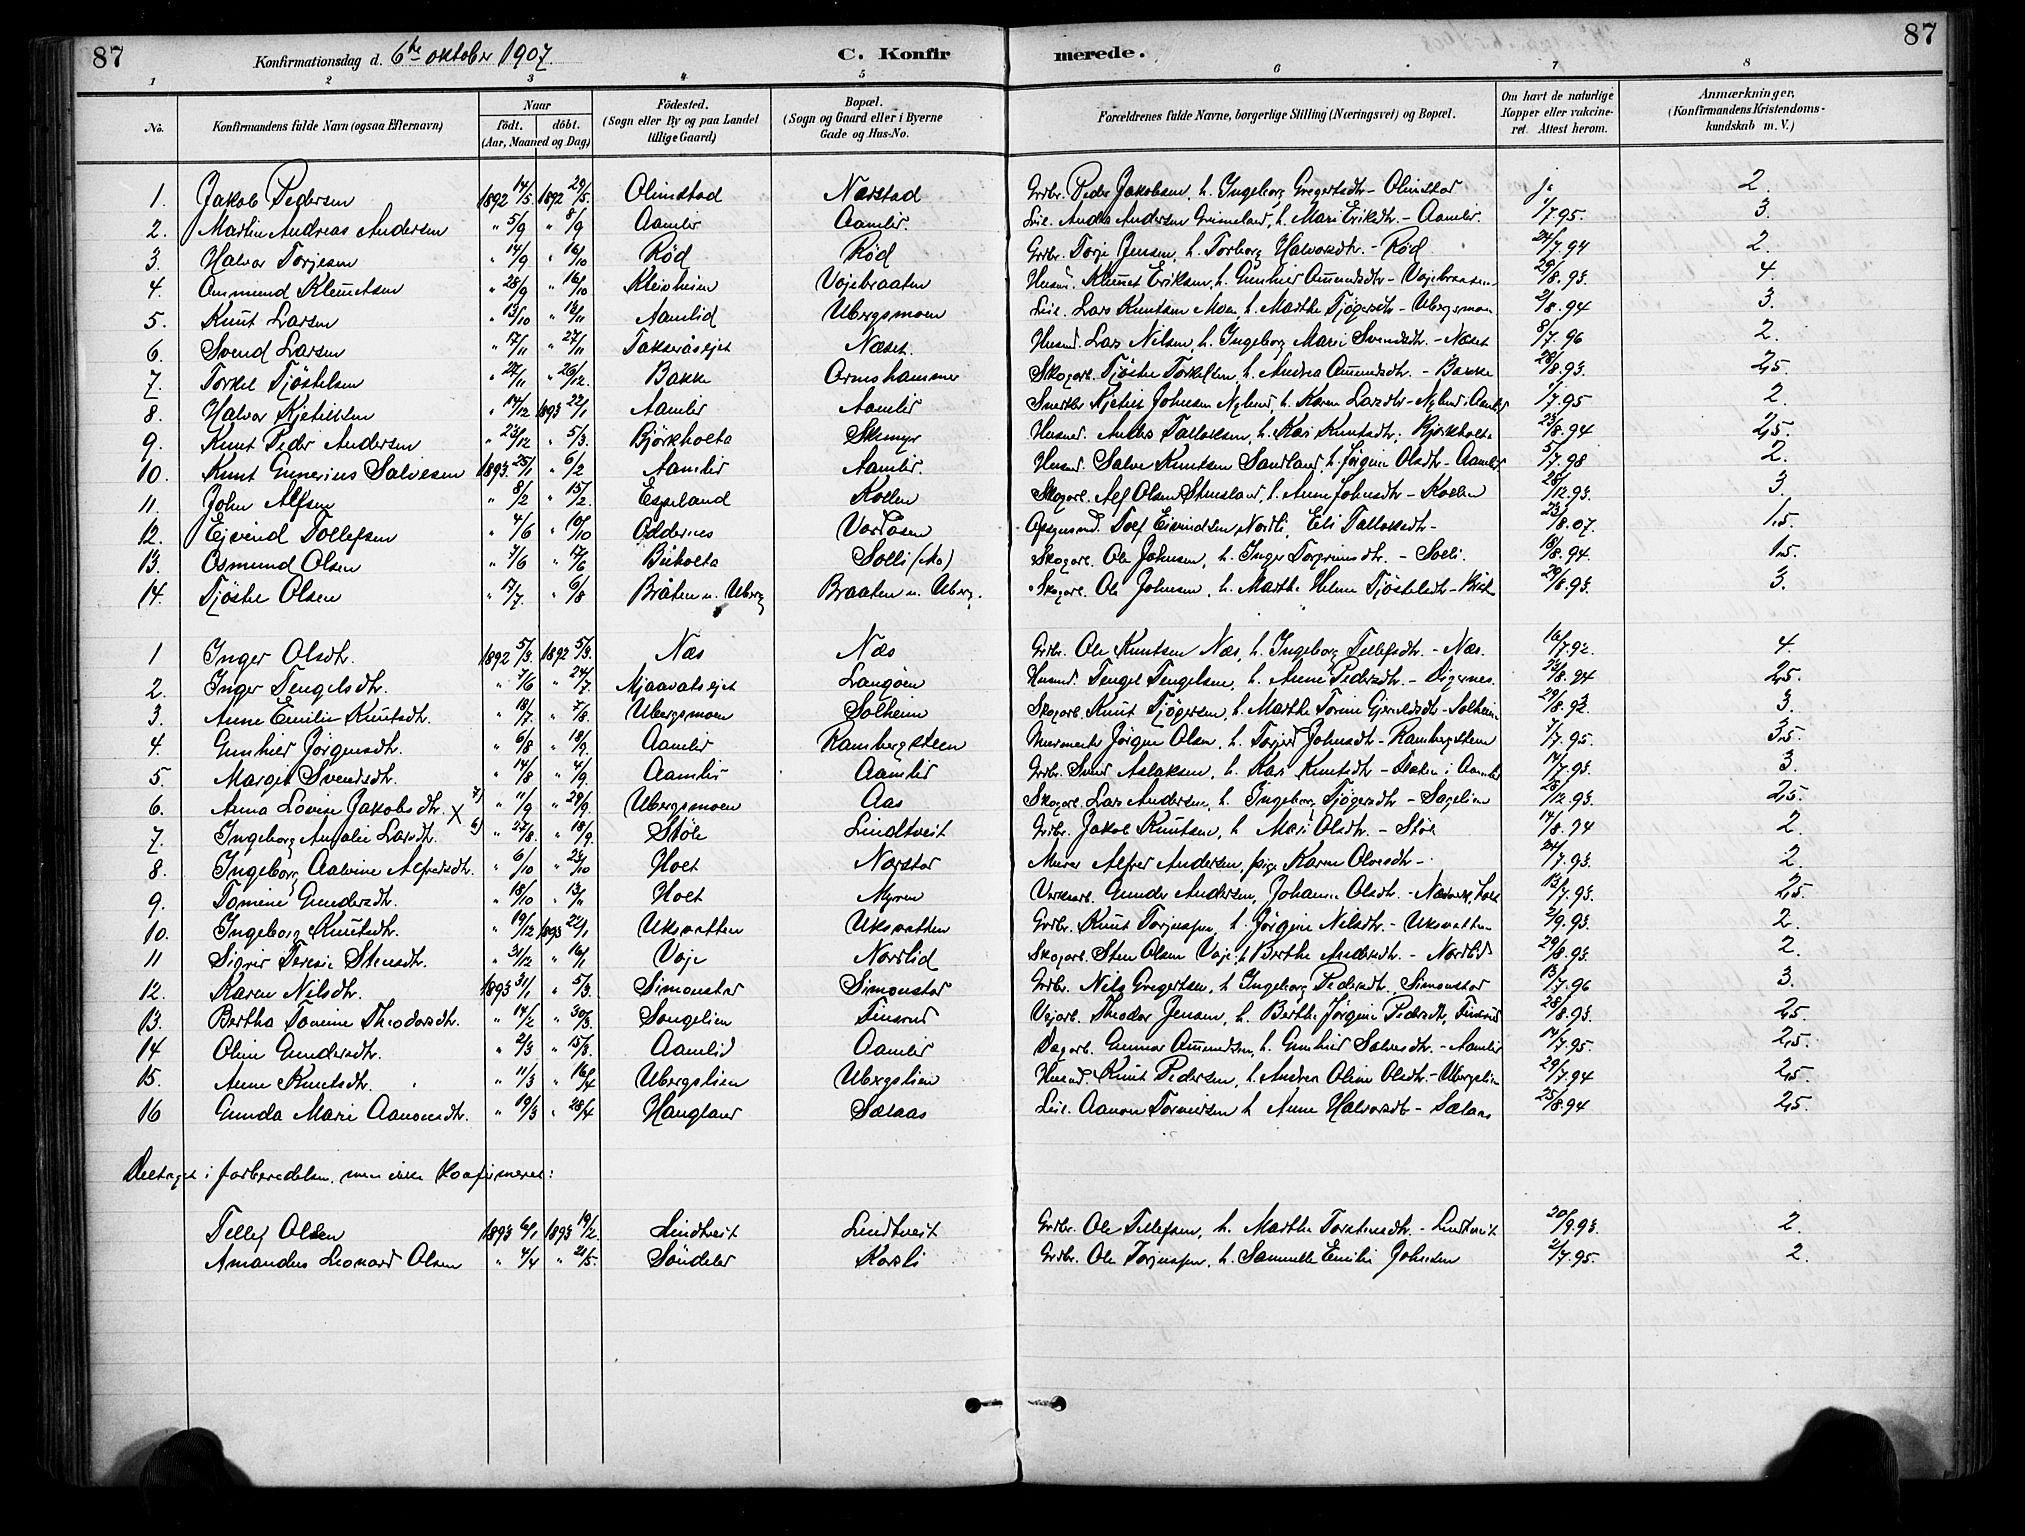 87
Konfirmationsdag d. 6te oktober 1907.
C. Konfirmerede.
87
1 2 3 4 5 6 7 8
No. Konfirmandens fulde Navn (ogsaa Efternavn) Naar født. døbt. (Aar, Maaned og Dag) Fødested. (Sogn eller By og paa Landet tillige Gaard) Bopæl. (Sogn og Gaard eller i Byerne Gade og Hus-No. Forældrenes fulde Navne, borgerlige Stilling (Næringsvei) og Bopæl. Om havt de naturlige Kopper eller vakcineret. Attest herom. Anmærkninger, (Konfirmandens Kristendomskundskab m. V.)
1. Jakob Pedersen 1892 14/5. 1892 29/5. Olimstad Nærstad Grdbr. Peder Jakobsen, h. Ingeborg Gregertsdtr. - Olimstad ja 2.
2. Martin Andreas Andersen " 5/9 " 8/9 Aamlir Aamlir. Leil. Andrea Andersen Grimeland, h. Mari Eriksdtr. - Aamlir. 1/7.95. 3.
3. Halvor Torjesen " 14/9 " 16/10 Rød Rød Grdbr. Torje Jensen, h. Torborg Halvorsdtr. - Rød 24/7.94 2.
4. Osmund Klemetsen " 28/9 " 16/10 Kleivheien Vojebraaten Husm. Klemet Eriksen, h. Gunhild Osmundsdtr - Vojebraaten 29/8.93. 4.
5. Knut Larsen " 13/10 " 13/11 Aamlid Ubergsmoen Leil. Lars Knutsen Moen, h. Marthe Tjøgersdtr - Ubergsmoen 2/8.94 3.
6. Svend Larsen " 17/11 " 27/11 Takseråsejet Næset. Husmd. Lars Nilsen, h. Ingeborg Marie Svendsdtr. - Næset 8/7.96 2.
7. Torkel Tjøstelsen " 27/11 " 26/12. Bakke Ormshammer Skogarb. Tjøstel Torkelsen, h. Andrea Osmundsdtr. - Bakke 28/8.93. 2,5.
8. Halvor Kjetilsen " 14/12 1893 22/1 Aamlir Aamlir Snedker Kjetil Johnsen Nylund, h. Karen Larsdtr - Nylund i Aamlir 1/7.95 2.
9. Knut Peder Andersen " 23/12 " 5/3. Bjørkholta Skimyr Husmd. Anders Tallaksen, h. Kari Knutsdtr, Bjørkholta 23/8.94 2,5.
10. Knut Gunerius Salvesen 1893. 25/1 " 6/2 Aamlir Aamlir. Husmd. Salve Knutsen Sandland, h. Jørgine Olsdtr - Aamlir 5/7.98 2.
11. John Alfsen " 8/2 " 15/2. Espeland Kollen Skogarb. Alf Olsen Stensland, h. Anne Johnsdtr - Kollen 28/12.93. 3.
12. Ejvind Tollefsen " 4/6 " 10/10 Oddernes Vardåsen Opsynsmd. Tolf Eivindsen Nordli, Eli Tallaksdtr - 23/8.07. 1,5.
13. Osmund Olsen " 7/6 " 17/6 Birkolta Solli (sko) Skogarb. Ole Johnsen, h. Inger Torgrimsdtr. - Solli. 18/8.94. 1,5.
14. Tjøstel Olsen " 17/7. " 6/8 Bråten u. Uberg Braaten u. Uberg. Skogarb. Ole Johnsen, h. Marthe Helene Tjøstelsdtr - Bråt 29/8.93. 3.
1 Inger Olsdtr. 1892 5/3. 1892 5/3. Næs Næs Grdbr. Ole Knutsen Næs, h. Ingeborg Tellefsdtr. - Næs. 16/7.92. 4.
2. Inger Tengelsdtr. " 7/6 " 24/7. Mjaavatsejet Langøen Husmd. Tengel Tengelsen, h. Anne Pedersdtr. - Digernes. 23/8.94 2,5.
3. Anne Emilie Knutsdtr. " 18/7. " 7/8. Ubergsmoen Solheim Skogarb. Knut Tjøgersen, h. Marthe Torine Gjeruldsdtr - Solheim 29/8.93. 3.
4. Gunhild Jørgensdtr. " 6/8 " 18/9. Aamlir Rambergsteen Murmester Jørgen Olsen, h. Torjerd Johnsdtr - Rambergsteen 7/7.95. 3,5.
5. Marget Svendsdtr. " 14/8 " 4/9. Aamlir Aamlir Grdbr. Svend Aslaksen, h. Kari Knutsdtr - i Aamlir 14/7.93. 3.
6. Anna Lovise Jakobsdtr. x 7) " 11/9 " 29/9. Ubergsmoen Aas Skogarb. Lars Andersen, h. Ingeborg Tjøgersdtr - Sagelien 28/12.93. 2,5.
7. Ingeborg Amalie Larsdtr. 6) " 27/8. " 18/9. Støle Lindtveit Grdbr. Jakob Knutsen, h. Mari Olsdtr. - Støle 14/8.94 2.
8. Ingeborg Aalvine Alfredsdtr. " 6/10 " 23/10 Holt Nærstad Murer Alfred Andersen, pige Karen Olvesdtr - 24/7.93. 2.
9. Tomine Gundersdtr. " 18/10 " 13/11 Holt Myren Verksarb. Gunder Andersen, Johanne Olsdtr. - Næsverk, Holt 13/7.93. 2,5.
10. Ingeborg Knutsdtr. " 19/12 1893 22/1 Uksvatten Uksvatten Grdbr. Knut Torjussen, h. Jørgine Nilsdtr. - Uksvatten 2/9.93. 2.
11 Sigrid Teresie Stensdtr. " 31/12 " 16/1 Voje Nordlid Skogarb. Sten Olsen Voje, h. Berthe Andersdtr. - Nordlid 29/8.93. 2.
12. Karen Nilsdtr. 1893 31/1 " 5/3. Simonstad Simonstad Grdbr. Nils Gregertsen, h. Ingeborg Pedersdtr, Simonstad 13/7.96 3.
13. Bertha Tomine Theodorsdtr. " 14/2 " 30/3. Songelien Finsrud Vejarb. Theodor Jensen, h. Berthe Jørgine Pedersdtr, Finsrud 28/8.93. 2,5.
14 Oline Gundersdtr. " 2/3 " 15/3. Aamlid Aamlir Dagarb. Gunnar Osmundsen, h. Gunhild Salvesdtr. - Aamlir 14/7.95. 2,5.
15. Anne Knutsdtr. " 11/3 " 16/4 Ubergslien Ubergslien Husmd. Knut Pedersen, h. Andrea Oline Olsdtr. - Ubergslien 29/7.94 2,5.
16 Gunda Marie Aanonsdtr. " 19/3 " 28/4 Haugland Sælaas Leil. Aanon Tormodsen h. Anne Halvorsdtr - Sælaas 25/8.94 2,5.
Deltaget i forberedelsen, men ikke konfirmeret:
Tellef Olsen 1893 6/1 1893 19/2. Lindtveit Lindtveit Grdbr. Ole Tellefsen, h. Marthe Torstensdtr. - Lindtveit 20/9.93. 2.
Amandus Leonard Olsen " 4/4 " 21/5. Søndeler Korsli Grdbr. Ole Torjussen, h. Samuelle Emilie Johnsdtr 2/7.95. 2.